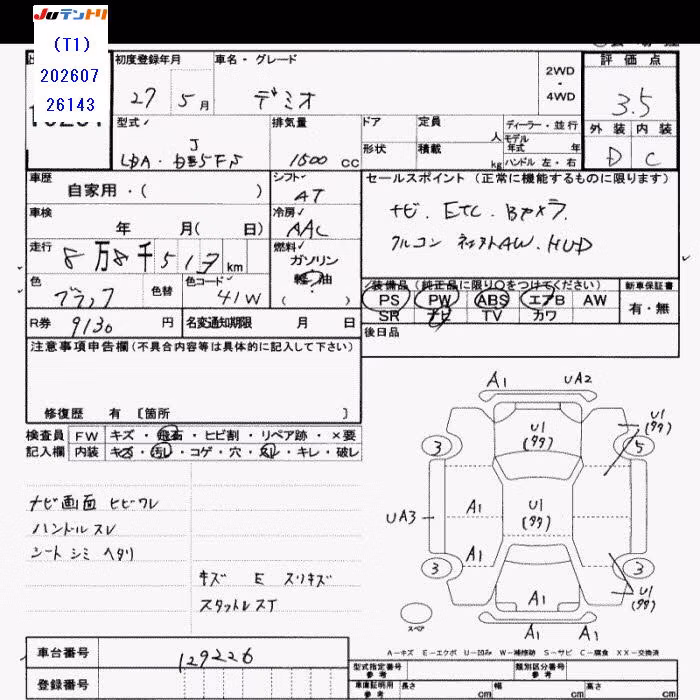 Juテントリ
(T1)
202607
26143
初度登録年月
車名・グレード
評価点
27 5月
デミオ
2WD
・
4WD
3.5
型式
排気量
ドア
定員
人
ディーラー・並行
外装 内装
モデル
年式 年
LDA・DJ5FS
1500 cc
形状
積載
kg
ハンドル 左・右
D C
車歴
シフト
セールスポイント(正常に機能するものに限ります)
自家用・( )
AT
ナビ. ETC. Bカメラ.
車検
冷房
年 月( 日)
AAC
クルコン ネクストAW. HUD
走行
燃料
8万8千517km
ガソリン
軽油
( )
色
色替
色コード
ブラック
41W
装備品(純正品に限り○をつけてください)
新車保証書
PS PW ABS エアB AW
有・無
SR ナビ TV カワ
R券 9130 円
名変通知期限 月 日
後日品
注意事項申告欄(不具合内容等は具体的に記入して下さい)
修復歴 有 〔箇所 〕
検査員 FW キズ・飛石・ヒビ割・リペア跡・×要
記入欄 内装 キズ・汚レ・コゲ・穴・スレ・キレ・破レ
A1 UA2
U1
(タタ)
U1
(タタ)
3 5
ナビ画面 ヒビワレ
ハンドルスレ
シート シミ ヘタリ
UA3
A1
U1
(タタ)
A1
3 3
キズ E スリキズ
スタットレスT
A1
U1
(タタ)
スペア
A1 A1
A-キズ E-エクボ U-凹み W-補修跡 S-サビ C-腐食 XX-交換済
車台番号 129226
型式指定番号
参考
類別区分番号
参考
登録番号
車庫証明用
参考
長さ cm
幅 cm
高さ cm